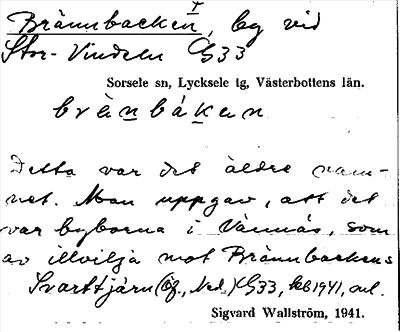 Brännbacken, by vid
Stor-Vindeln G33
Sorsele sn, Lycksele tg, Västerbottens län.
brènbákan
Detta var det äldre nam-
net. Man uppgav, att det
var byborna i Vännäs, som
av illvilja mot Brännbackens
Svarttjärn (Öf., Ned.) G33, 1941, avl.
Sigvard Wallström, 1941.